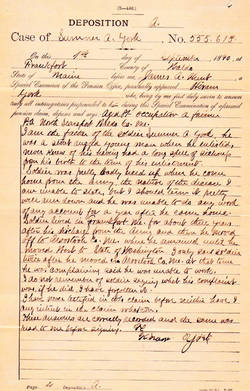 (3—446.)
DEPOSITION A.
Case of Sumner A. York, No. 555.612
On this 9th day of September, 1890, at
Frankfort, County of Waldo
State of Maine, before me, James A. Hunt, a
Special Examiner of the Pension Office, personally appeared Hiram
York, who, being by me first duly sworn to answer
truly all interrogatories propounded to him during this Special Examination of aforesaid
pension claim, deposes and says: Age 81, occupation a farmer
I am the father of the soldier Sumner A. York, he
was a strong rugged young man when he enlisted
never knew of his having had a long spell of sickness
from his birth to the time of his enlistment.
Soldier was pretty badly used up when he come
home from the army, the nature of his disease I
am unable to state, but I should think he pretty
worn down and he was unable to do any work
of any account for a year after he came home.
Soldier lived in Frankfort Me. for about three years
after his discharge from the army and then he moved
off to Aroostook Co. Me. where he remained until he
moved West to State of Washington. I only said soldier
after he moved to Aroostook Co. Me. at that time
he was complaining said he was unable to work.
I do not remember of soldier saying what his complaint
was, if he did I have forgotten it.
I have never testified in this claim before neither have I
any interest in the claim whatever.
Above answers are correctly recorded and the same was
read to me before signing.
Hiram York
Page 6 Deposition A.